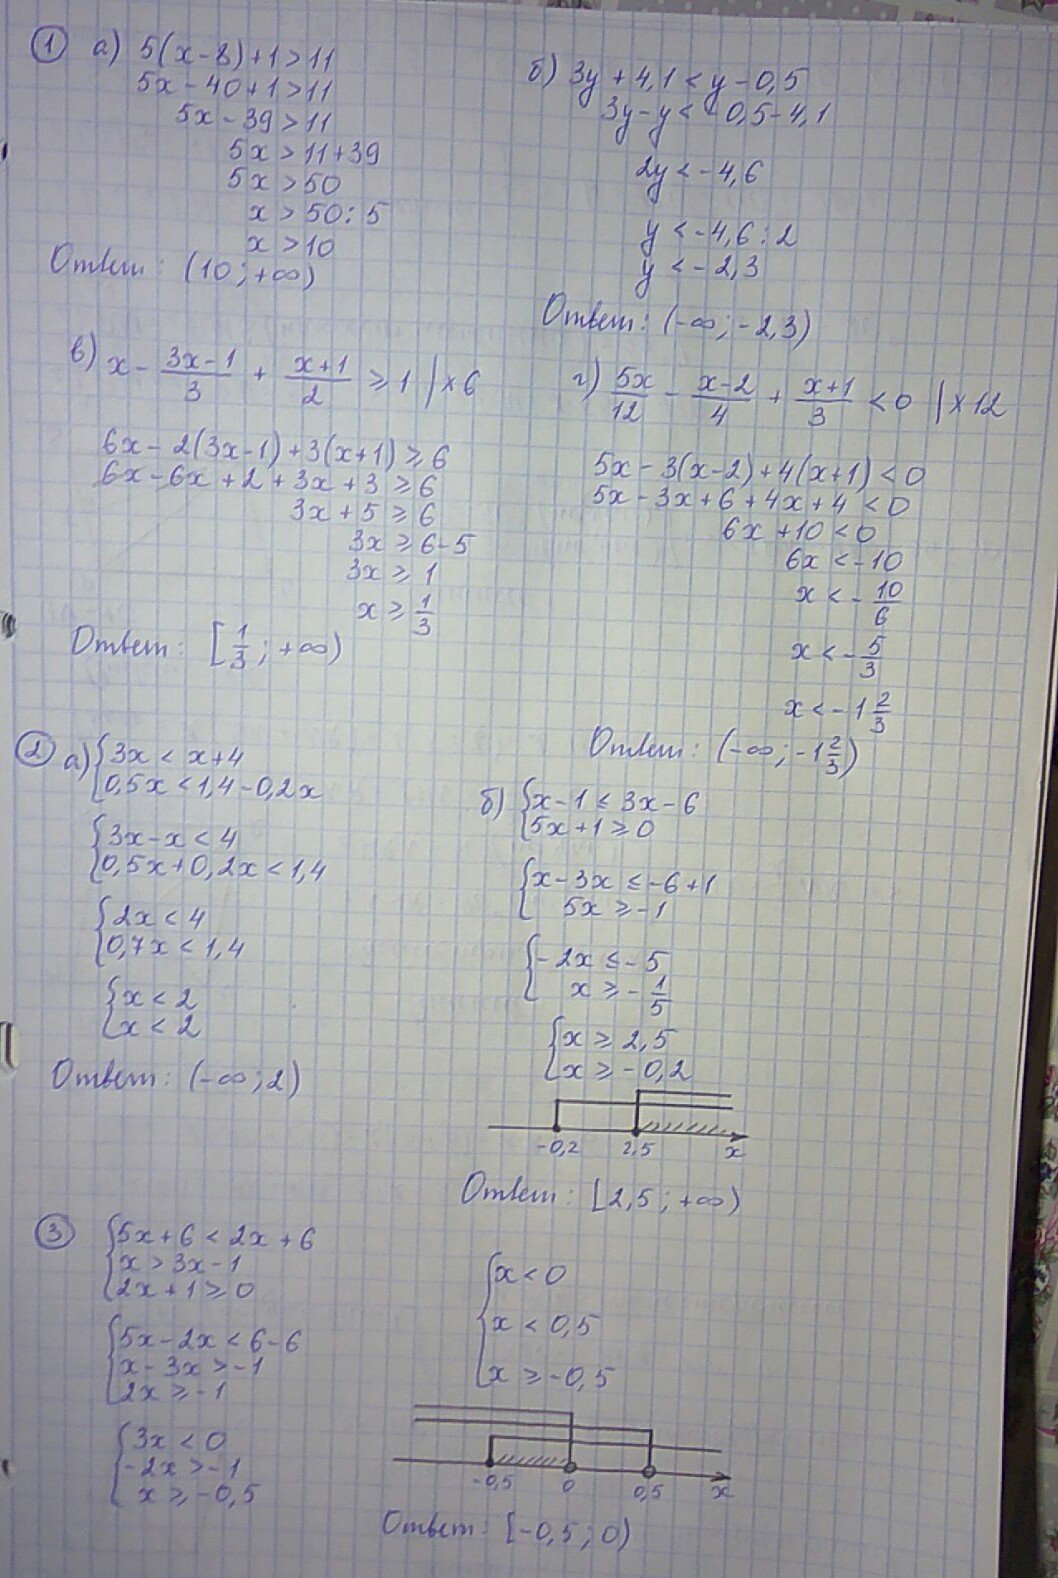 ① а) 5(x-8)+1>11
5x-40+1>11
5x-39>11
5x>11+39
5x>50
x>50:5
x>10
Ответ: (10; +∞)
б) 3y+4,1<y-0,5
3y-y<-0,5-4,1
2y<-4,6
y<-4,6:2
y<-2,3
Ответ: (-∞; -2,3)
в) x - (3x-1)/3 + (x+1)/2 ⩾ 1 | ×6
6x-2(3x-1)+3(x+1)⩾6
6x-6x+2+3x+3⩾6
3x+5⩾6
3x⩾6-5
3x⩾1
x⩾1/3
Ответ: [1/3; +∞)
г) 5x/12 - (x-2)/4 + (x+1)/3 < 0 | ×12
5x-3(x-2)+4(x+1)<0
5x-3x+6+4x+4<0
6x+10<0
6x<-10
x<-10/6
x<-5/3
x<-1 2/3
Ответ: (-∞; -1 2/3)
② а) {3x<x+4
0,5x<1,4-0,2x
{3x-x<4
0,5x+0,2x<1,4
{2x<4
0,7x<1,4
{x<2
x<2
Ответ: (-∞; 2)
б) {x-1⩽3x-6
5x+1⩾0
{x-3x⩽-6+1
5x⩾-1
{-2x⩽-5
x⩾-1/5
{x⩾2,5
x⩾-0,2
-0,2 2,5 x
Ответ: [2,5; +∞)
③ {5x+6<2x+6
x>3x-1
2x+1⩾0
{5x-2x<6-6
x-3x>-1
2x⩾-1
{3x<0
-2x>-1
x⩾-0,5
{x<0
x<0,5
x⩾-0,5
-0,5 0 0,5 x
Ответ: [-0,5; 0)